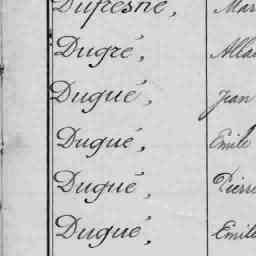 Dufresne, Mar
Dugré, Alla
Dugué, Jean
Dugué, Emile
Dugué, Pierre
Dugué, Emile